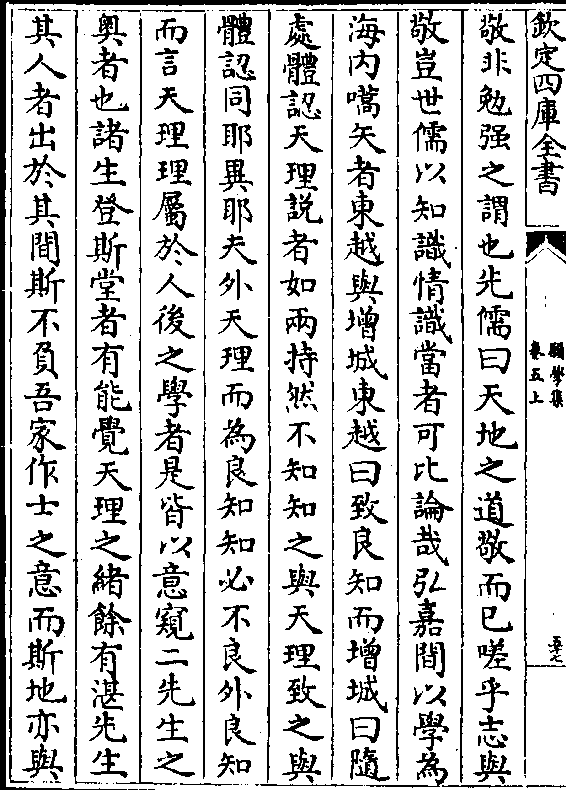 敬非勉强之謂也先儒曰天地之道敬而已嗟乎志與
敬豈世儒以知識情識當者可比論哉弘嘉間以學為
海内嚆矢者東越與增城東越曰致良知而增城曰隨
處體認天理説者如兩持然不知知之與天理致之與
體認同耶異耶夫外天理而為良知知必不良外良知
而言天理理屬於人後之學者是皆以意窺二先生之
奥者也諸生登斯堂者有能覺天理之緒餘有湛先生
其人者出於其間斯不負吾家作士之意而斯地亦與
欽定四庫全書
願學集
卷五上